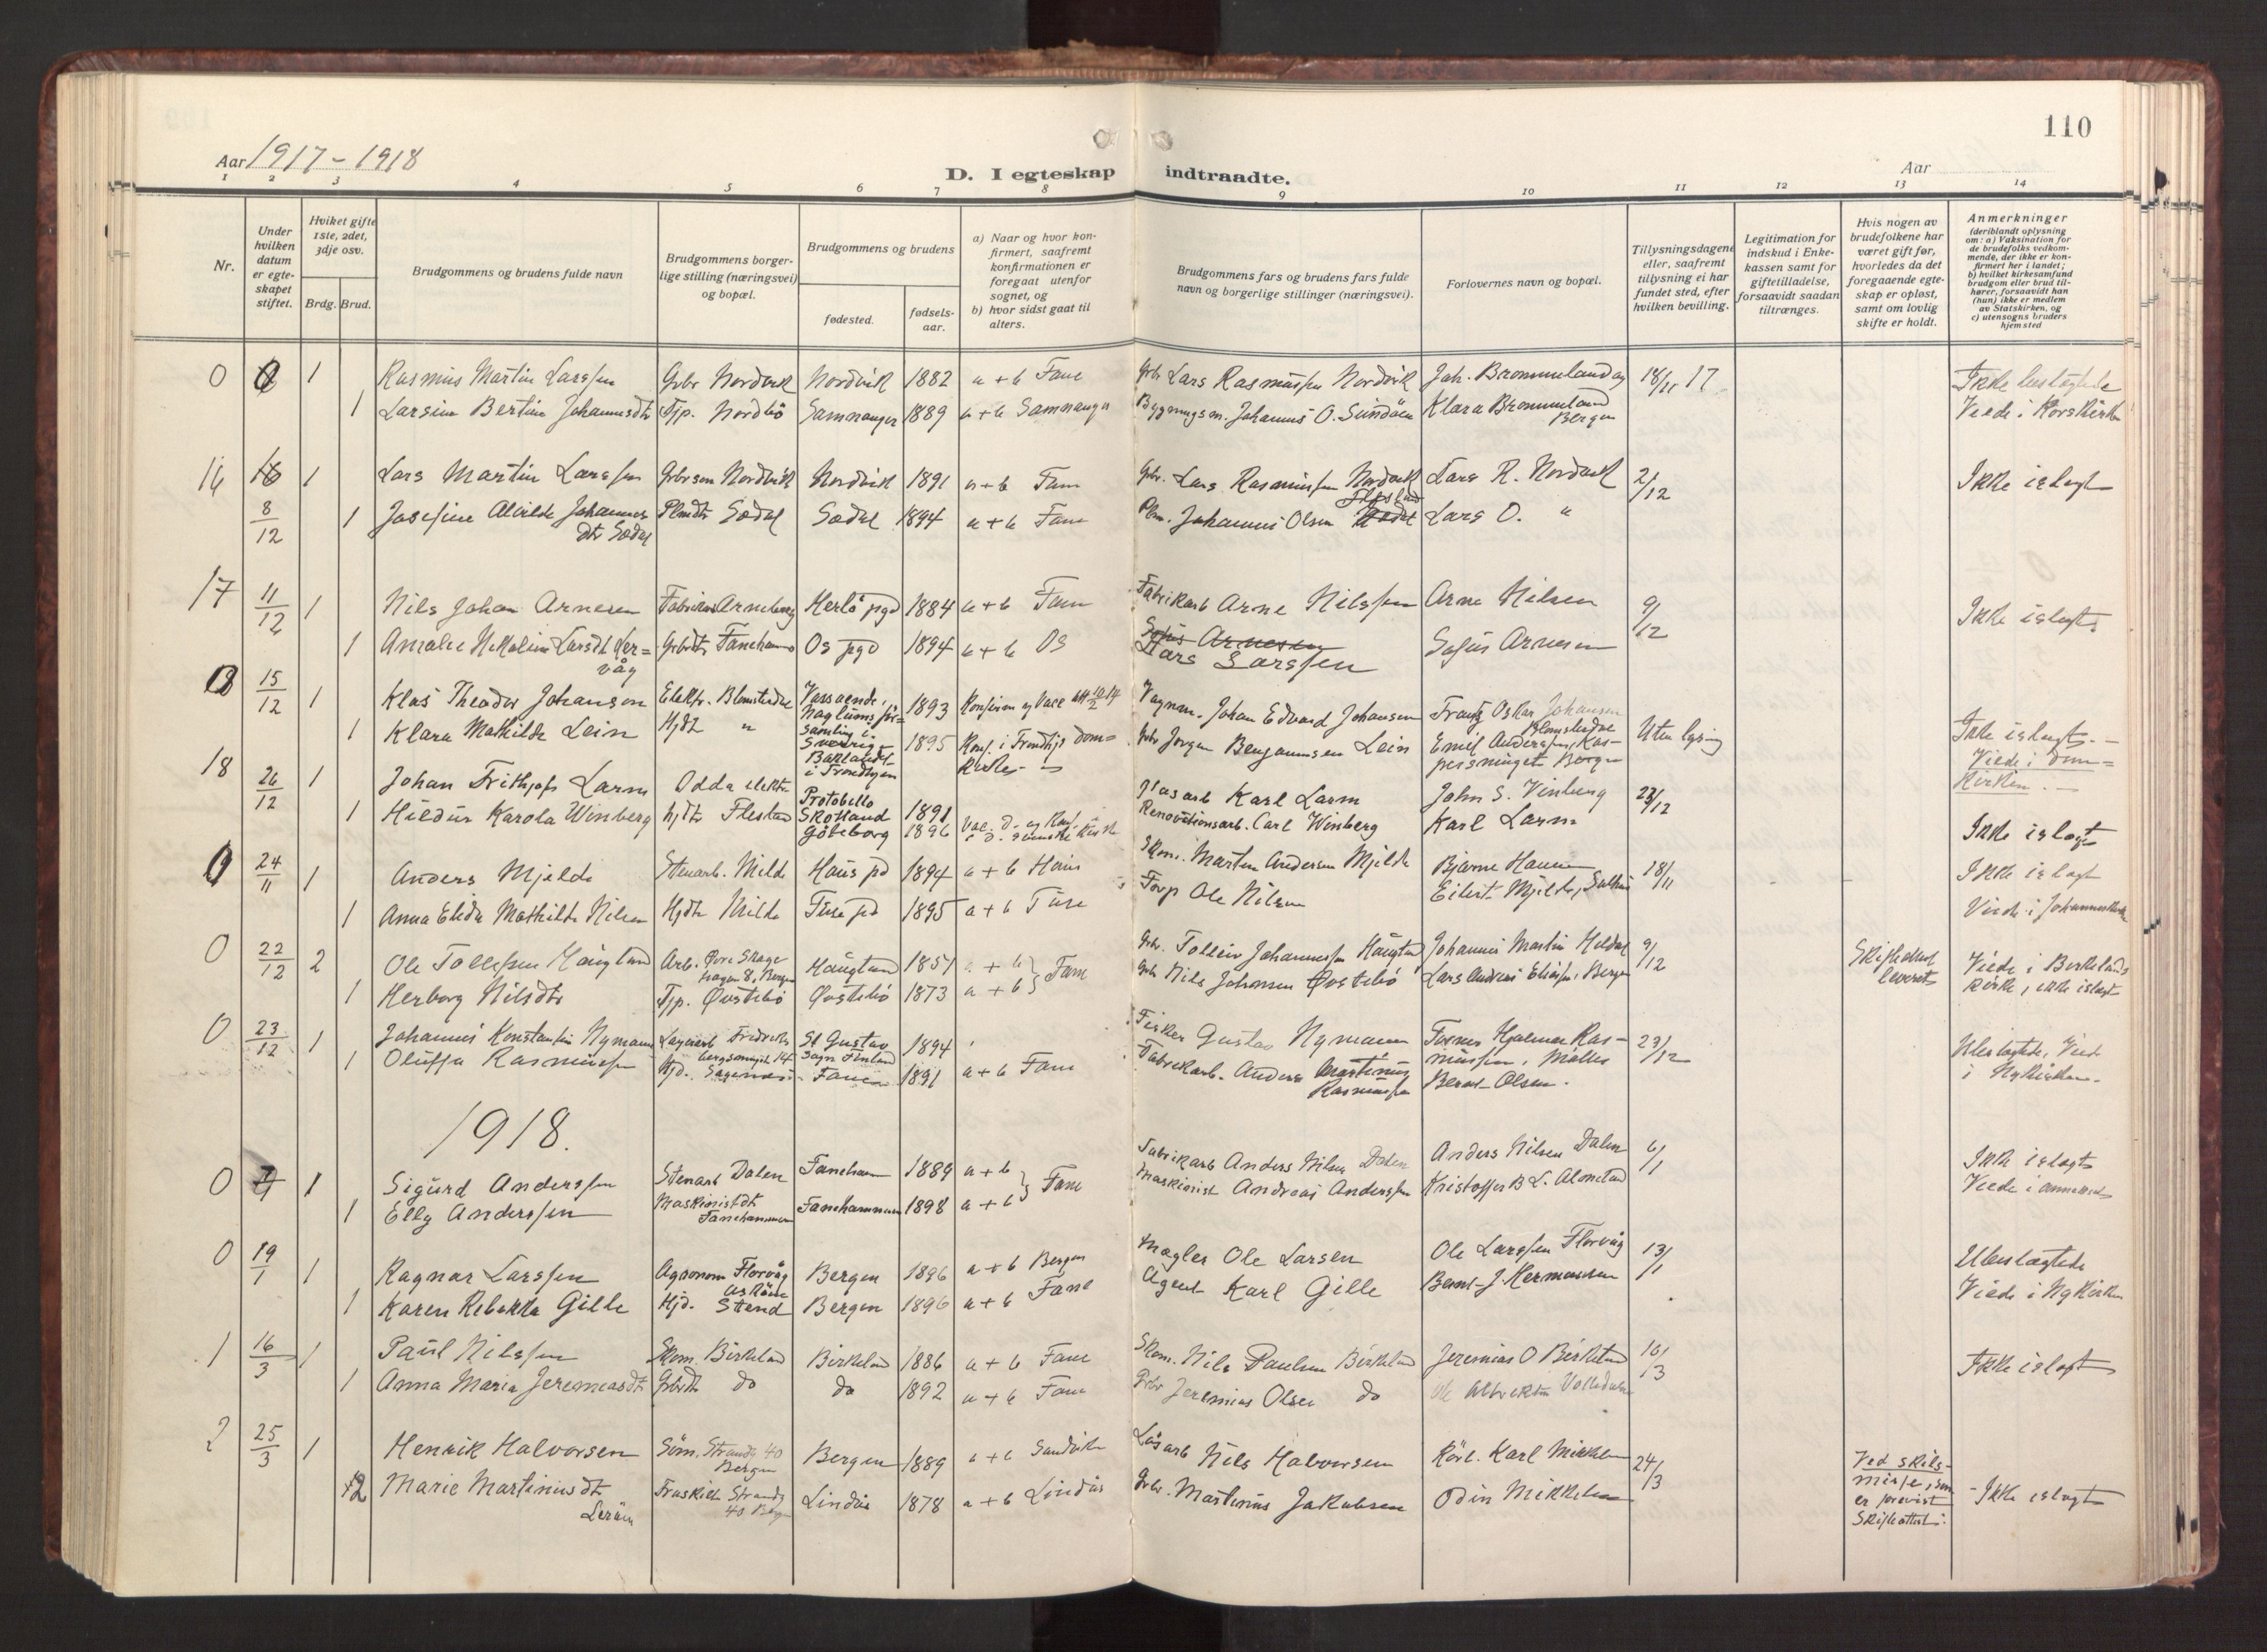 110
Aar 1917 - 1918
D. I egteskap indtraadte.
Aar
1 2 3 4 5 6 7 8 9 10 11 12 13 14
Nr.
Under hvilken datum er egteskapet stiftet.
Hviket gifte 1ste, 2det, 3dje osv.
Brdg. Brud.
Brudgommens og brudens fulde navn
Brudgommens borgerlige stilling (næringsvei) og bopæl.
Brudgommens og brudens
fødested.
fødselsaar.
a) Naar og hvor konfirmert, saafremt konfirmationen er foregaat utenfor sognet, og
b) hvor sidst gaat til alters.
Brudgommens fars og brudens fars fulde navn og borgerlige stillinger (næringsvei).
Forlovernes navn og bopæl.
Tillysningsdagene eller, saafremt tillysning ei har fundet sted, efter hvilken bevilling.
Legitimation for indskud i Enkekassen samt for giftetilladelse, forsaavidt saadan tiltrænges.
Hvis nogen av brudefolkene har været gift før, hvorledes da det foregaaende egteskap er opløst, samt om lovlig skifte er holdt.
Anmerkninger (deriblandt oplysning om: a) Vaksination for de brudefolks vedkommende, der ikke er konfirmert her i landet; b) hvilket kirkesamfund brudgom eller brud tilhører, forsaavidt han (hun) ikke er medlem av Statskirken, og c) utensogns bruders hjemsted
0 1 Rasmus Martin Larssen Gbr Nordvik Nordvik 1882 a + b Fane Gbr Lars Rasmussen Nordvik Joh. Brommeland og 18/11 17 Ikke beslegtede
1 Larsine Bertine Johannesdtr Tjp. Nordbö Samnanger 1889 a + b Samnanger Bygningsm. Johannes O. Klara Brommeland Bergen Viede i Korskirken
16 8/12 1 Lars Martin Larssen Gbrsøn Nordvik Nordvik 1891 a + b Fane Gbr. Lars Rasmussen Nordvik Lars R. Nordvik 2/12 Ikke i slegt
1 Josefine Alvilde Johannesdtr Sædal Plmdtr Sædal Sædal 1894 a + b Fane Plm. Johannes Olsen Lars O. "
17 11/12 1 Nils Johan Arnesen Fabrikarb Herlö pgd 1884 a + b Fane Fabrikarb Arne Nilssen Arne Nilsen 9/12 Ikke i slegt
1 Amalie Larsdt Lervåg Gbrdtr Fanehamn Os pgd 1894 a + b Os Lars Larssen Sofus Arnesen
0 15/12 1 Klas Theodor Johanson Elektr. Blomsterdal 1893 Vagnm. Johan Edvard Johansen Frantz Oskar Johansen Blomsterdal Uten lysning Ikke i slegt. -
1 Klara Mathilde Lein Hjdt " Baklandet i Trondhjem 1895 Konf. i Trondhjs Domkirke Gbr Jørgen Benjaminsen Lein Emil Anderssen, Bergen Viede i Domkirken. -
18 26/12 1 Johan Frithjof Larm Odda elektr Protobello Skotland 1891 Glasarb Karl Larm John S. Vinberg 23/12
1 Hildur Karola Winberg hjdtr Flesland Göteborg 1896 Renovationsarb. Carl Winberg Karl Larm Ikke i slegt
0 24/11 1 Anders Mjelde Stenarb. Milde Haus pd 1894 a + b Haus Skom. Martin Andersen Mjelde Bjarne Hauen 18/11 Ikke i slegt
1 Anna Elida Mathilde Nilsen Hjdtr Milde Fuse pd 1895 a + b Fuse Forp Ole Nilsen Eilert Mjelde, Viede i Johanneskirke
0 22/12 2 Ole Tollefsen Haugland Arb. Øvre Bergen Haugland 1851 a + b Fane Gbr. Tolleiv Johannessen Haugland Johannes Martin Hildal 9/12 Skifteattest leveret Viede i Birkelands
1 Herborg Nilsdtr Tjp. Øvstebö Øvstebö 1873 a + b Gbr Nils Johansen Øvstebö Lars Andreas Eliassen, Bergen kirke, ikke i slegt
0 23/12 1 Johannes Konstantin Nymann St Gustav Sogn Finland 1894 Fisker Gustav Nymann Hjalmar Rasmussen, 23/12 Ubeslegtede, Viede
1 Oluffa Rasmussen Hjd. Fane 1891 a + b Fane Fabrikarb. Anders Martinus Rasmussen Bernt Olsen. i Nykirken.
1918.
0 1 Sigurd Anderssen Stenarb Dalen Fanehamn 1889 a + b Fane Fabrikarb Anders Nilsen Dalen Anders Nilsen Dalen 6/1 Ikke i slegt
1 Elly Anderssen Maskinistdt Fanehamn Fanehammeren 1898 a + b Maskinist Andreas Anderssen Kristoffer B. L. Viede i
0 19/1 1 Ragnar Larssen Agronom Florvåg Askøen Bergen 1896 a + b Bergen Mægler Ole Larsen Ole Larssen Florvåg 13/1 Ubeslegtede
1 Karen Rebekka Gille Hjd. Stend Bergen 1896 a + b Fane Agent Karl Gille Bernt J. Hermansen Viede i Nykirken
1 16/3 1 Paul Nilssen Skom. Birkeland Birkeland 1886 a + b Fane Skom. Nils Paulsen Birkeland Jeremias O Birkeland 10/3 Ikke i slegt
1 Anna Maria Jeremiasdt Gbrdt do do 1892 a + b Fane Gbr Jeremias Olsen do Ole
2 25/3 1 Henrik Halvorsen Søm. Strandg 40 Bergen Bergen 1889 a + b Sandviken Løsarb Nils Halvorsen Karl Mikkelsen 24/3 Ved skilsmisse, som
2 Marie Martinusdt Fraskilt Strandg 40 Bergen Lindås 1878 a + b Lindås Gbr. Martinus Jakobsen Odin Mikkelsen er previst Skifteattest. - Ikke i slegt